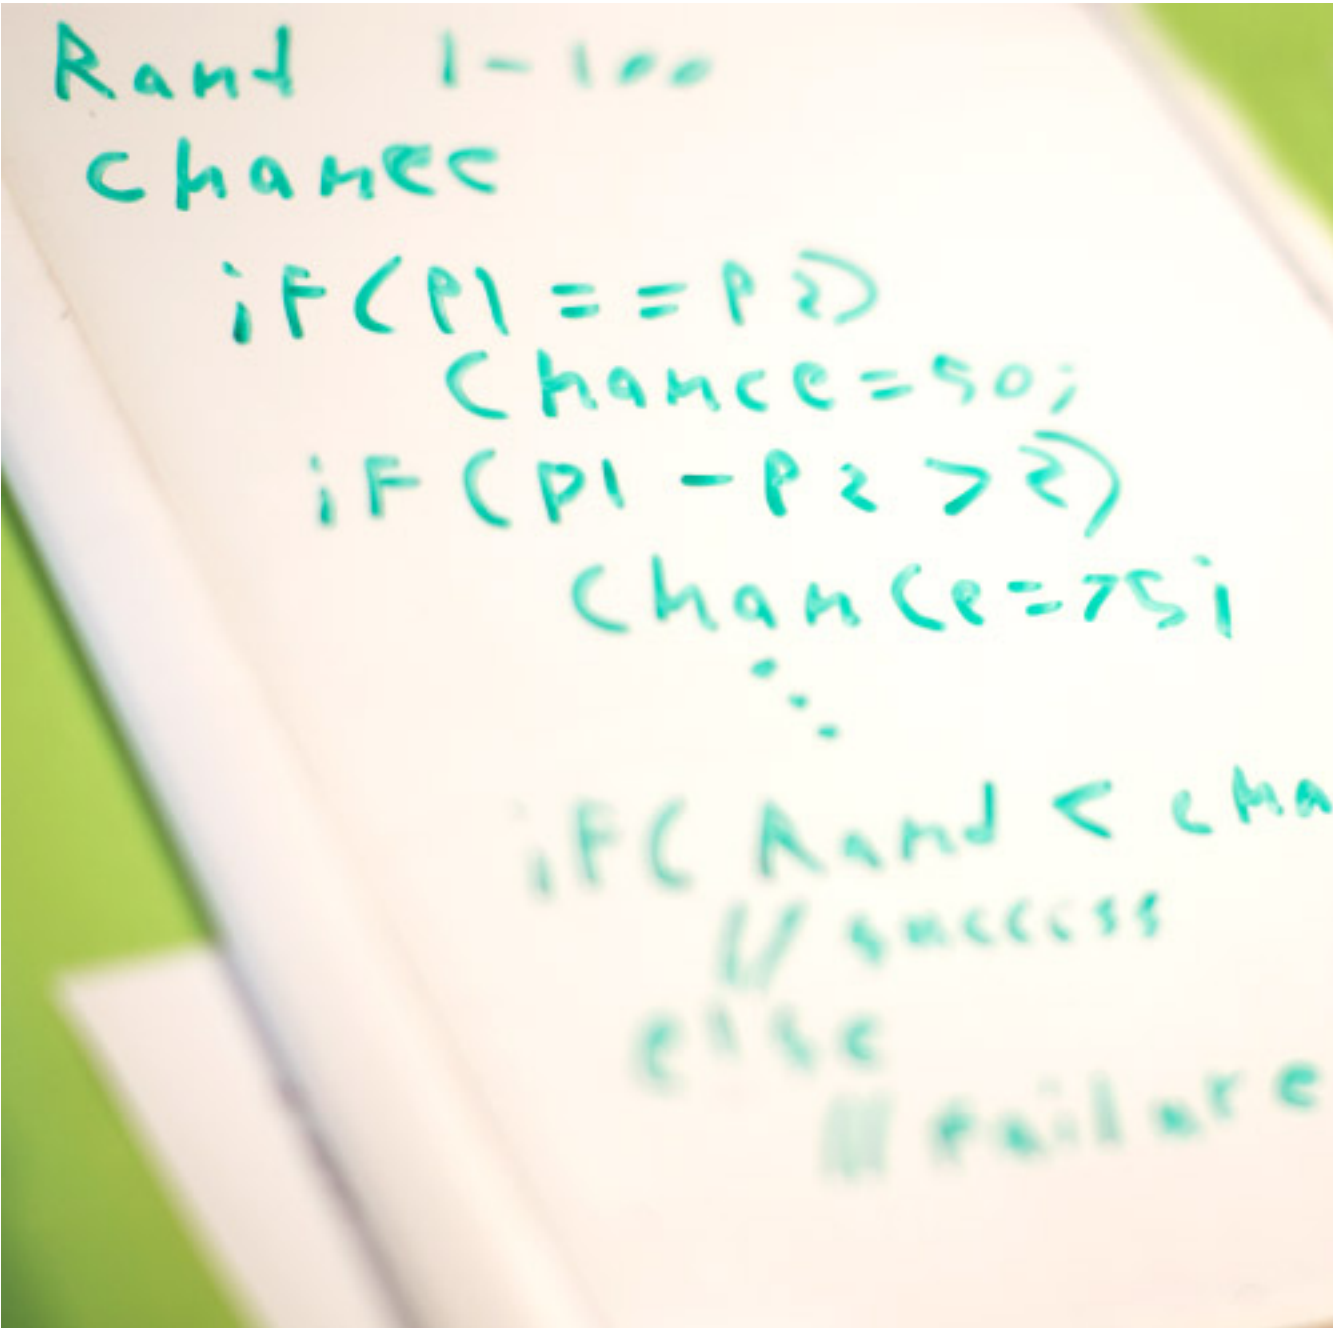 Rand 1-100
chance
if(P1==P2)
Chance=50;
if(P1-P2>2)
Chance=75;
if(Rand < cha
// success
else
// failure